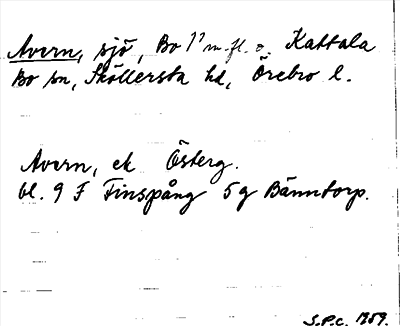 Avern, sjö, Bo 1⁷ m.fl. o. Kattala
Bo sn, Sköllersta hd, Örebro l.
Avern, ek Österg.
bl. 9 F Finspång 5g Bänntorp.
S.P.C. 1959.